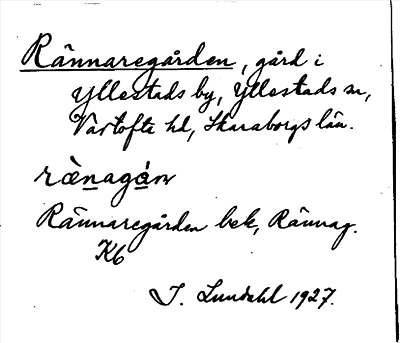 Rännaregården, gård i
Yllestads by, Yllestads sn,
Vartofta hd, Skaraborgs län.
rènagáṇ
Rännaregården bek, Rännag.
K6
J. Lundahl 1927.